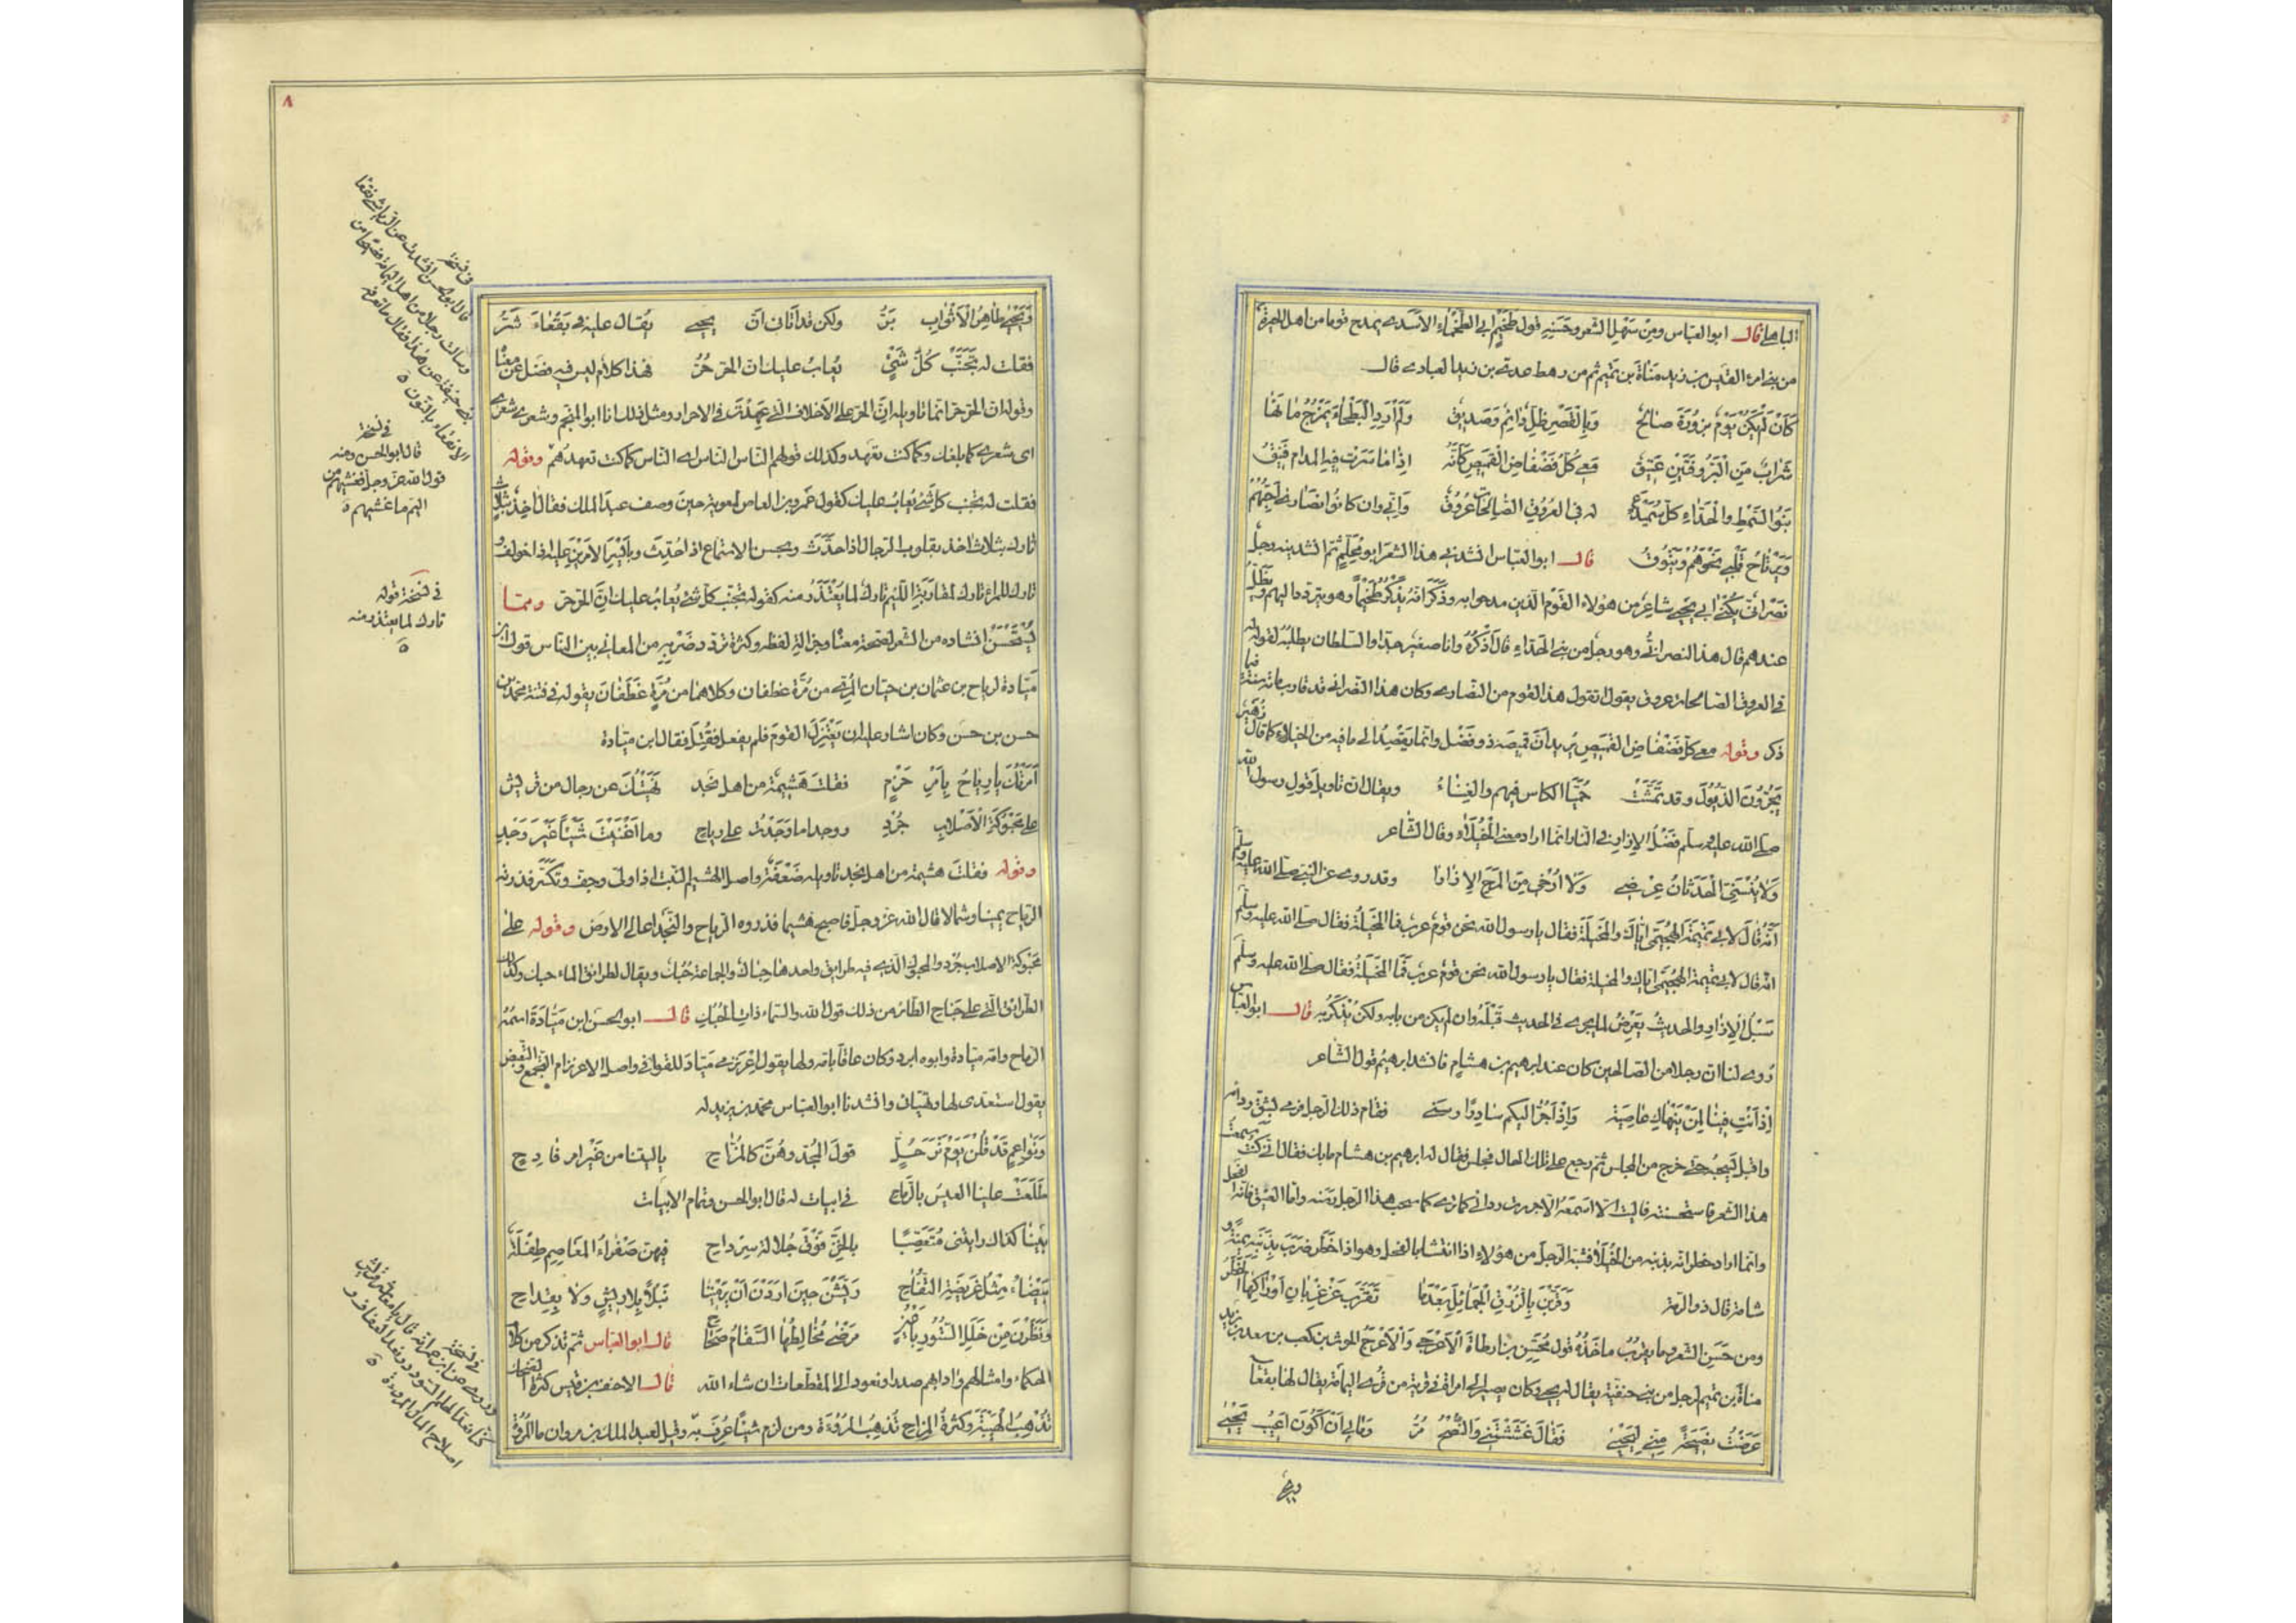 الباهلي قال ابو العباس ومن سهل الشعر وحسنه قول طخيم ابي الطخماء الاسدي يمدح قوما من اهل الحيرة
من بني امرء القيس بن زيد مناة بن تميم ثم من رهط عدي بن زيد العبادي قال
كَاَنْ لَمْ يَكُنْ يَوْمٌ بزُورَةَ صَالِحٌ وَبِالْقَصْرِ ظِلٌّ دَائِمٌ وَصَدِيقُ وَلَمْ اَرِدِ الْبَطْحَاءَ يَمْزُجُ مَاءَهَا
شَرَابٌ مِنَ الْبَرُوقَتَيْنِ عَتِيقُ مَعِي كُلُّ فَضْفَاضِ الْقَمِيصِ كَاَنَّهُ اِذَا مَا سَرَتْ فِيهِ الْمدَام فَنِيقُ
بَنُو السَّمْطِ وَالْحَدَّاءِ كُلُّ سَمَيْدَعٍ له فِي الْعُرُوقِ الصَّالِحَاتِ عُرُوقُ وَاِنِّي وَاِن كَانُوا نَصَارَى اُحِبُّهُمْ
وَيَرْتَاحُ قَلْبِي نَحْوَهُمْ وَيَتُوقُ قال ابو العباس انشدني هذا الشعر ابو محلم ثم انشدنيه رجل
نصراني يكنى ابي يحيى شاعر من هؤلاء القوم الذين مدحوا به وذكر انه يذكر طخيما وهو يتردد اليهم ويظل
عندهم قال هذا النصراني وهو رجل من بني الحداء قال اذكره وانا صغير جدا والسلطان يطلبه لقوله له
في العروق الصالحات عروق يقول اتقول هذا لقوم من النصارى وكان هذا النصراني قد قارب مائة سنة فيما
ذكر وقوله معي كل فضفاض القميص يريد ان قميصه ذو فضل وانما يقصد الى ما فيه من الخيلاء كما قال زهير
يَجُرُّونَ الذُّيُولَ وقد تَمَشَّتْ حُمَيَّا الكاس فيهم والغناءُ ويقال ان تاويل قول رسول الله
صلى الله عليه وسلم فضل الازار في النار انما اراد معنى الخيلاء وقال الشاعر
وَلَا يُنْسِنِي الْحَدَثَانُ عِرْضِي وَلَا اُرْخِي مِنَ الْمَرَحِ الْاِزَارَا وقد روي عن النبي صلى الله عليه وسلم
انه قال لابي تميمة الهجيمي اياك والمخيلة فقال يا رسول الله نحن قوم عرب فما المخيلة فقال صلى الله عليه وسلم
انه قال لابي تميمة الهجيمي اياك والمخيلة فقال يا رسول الله نحن قوم عرب فما المخيلة فقال صلى الله عليه وسلم
سَبْلُ الازار والحديث يعرض لما يجري في الحديث قبله وان لم يكن من بابه ولكن يذكر به قال ابو العباس
روي لنا ان رجلا من الصالحين كان عند ابرهيم بن هشام فانشد ابرهيم قول الشاعر
اِذْ اَنْتِ فِينَا لِمَنْ يَنْهَاكِ عَاصِيَة وَاِذْ اَجُرُّ اليكم سَادِرًا رسني فقام ذلك الرجل فرمى بشق ردائه
واقبل يسحبه حتى خرج من المجلس ثم رجع على تلك الحال فجلس فقال له ابرهيم بن هشام ما بك فقال اني كنت سمعت
هذا الشعر فاستحسنته فاليت الا اسمعه الا جررت ردائي كما ترى كما سحب هذا الرجل رسنه واما الفنيق فانه الفحل
وانما اراد خطرانه بذنبه من الخيلاء فشبه الرجل من هؤلاء اذا انتشا بالفحل وهو اذا خطر ضرب بذنبه يمنة و
شامة قال ذو الرمة وَقَرَّبْنَ بِالزُّرْقِ الْجَمَائِلَ بَعْدَمَا تَقَوَّبَ عَنْ غِرْبَانِ اَوْرَاكِهَا الخَطْرُ
ومن حسن الشعر وما يقرب ماخذه قول مخيس بن ارطاة الاعرجي والاعرج الحرث بن كعب بن سعد بن زيد
مناة بن تميم لرجل من بني حنيفة يقال له يحيى وكان يصير الى امراة في قرية من قرى اليمامة يقال لها بقعا
عَرَضْتُ نَصِيحَةً مِنِّي لِيَحْيَى فَقَالَ غَشَشْتَنِي وَالنُّصْحُ مُرُّ وَمَا بِي اَنْ اَكُونَ اَعِيبُ يَحْيَى
ويحيى
٨
وَيَحْيَى طَاهِرُ الْاَثْوَابِ بَرُّ ولكن قد اتانى اَنَّ يحيى يُقال عليه في بَقْعَاءَ شَرُّ
فقلت له تَجَنَّبْ كُلَّ شَيْءٍ يُعَابُ عليك ان الحر حُرُّ فهذا كلام ليس فيه فضل عن معناه
وقوله ان الحر حر انما تاويله ان الحر على الاخلاق التي عهدت في الاحرار ومثل ذلك انا ابو النجم وشعري شعري
اى شعري كما بلغك وكما كنت تعهد وكذلك قولهم الناس الناس اى الناس كما كنت تعهدهم وقوله
فقلت له تجنب كل شيء يعاب عليك كقول عمرو بن العاص لمعوية حين وصف عبد الملك فقال اخذ بثلاث
تارك بثلاث اخذ بقلوب الرجال اذا حدث وبحسن الاستماع اذا حدث وبايسر الامرين عليه اذا خولف و
تارك للمراء تارك لمقاربة اللئيم تارك لما يعتذر منه كقوله تجنب كل شيء يعاب عليك ان الحر حر ومما
يستحسن انشاده من الشعر لصحة معناه وجزالة لفظه وكثرة تردد ضربه من المعاني بين الناس قول ابن
ميادة لرياح بن عثمان بن حيان المري من مرة غطفان وكلاهما من مرة غطفان يقوله في فتنة محمد بن
حسن بن حسن وكان اشار عليه ان يعتزل القوم فلم يفعل فقتل فقال ابن ميادة
اَمَرْتُكَ يا رِيَاحُ بِاَمْرِ حَزْمٍ فقلتَ هَشِيمَةٌ من اهل نجد نَهَيْتُكَ عن رجال من قريش
على مَحْبُوكَةِ الْاَصْلَابِ جُرْدِ ووجدا ما وَجَدْتُ على رياح وما اَغْنَيْتُ شَيْئًا غَيْرَ وَجْدِي
وقوله فقلت هشيمة من اهل نجد تاويله ضعفة واصل الهشيم النبت اذا ولى وجف وتكسر فذرته
الرياح يمينا وشمالا قال الله عز وجل فاصبح هشيما تذروه الرياح والنجد اعالي الارض وقوله على
محبوكة الاصلاب جرد والمحبوك الذي فيه طرائق واحدها حباك والجماعة حبك ويقال لطرائق الماء حبك وكذلك
الطرائق التي على جناح الطائر من ذلك قول الله والسماء ذات الحبك قال ابو الحسن ابن ميادة اسمه
الرياح وامه ميادة وابوه ابرد وكان عاقا بامه ولها يقول اعرنزمي مياد للقوافي واصل الاعرنزام التجمع والتقبض
يقول استعدى لها وتهيان وانشدنا ابو العباس محمد بن يزيد له
وَنَوَاعِمٍ قَدْ قُلْنَ يَوْمَ تَرَحُّلٍ قولَ المُجِدِّ وهُنَّ كالمُزَّاحِ ياليتنا من غَيْرِ امر فادحٍ
طَلَعَتْ علينا العيسُ بالرماح في ابيات له قال ابو الحسن وتمام الابيات
بَيْنَا كذاك رايتنى مُتَعَصِّبًا بالخز فَوْقَ جُلَالَةٍ سِرْداحِ فيهن صَفْرَاءُ المَعَاصِمِ طِفْلَةٌ
بَيْضَاءُ مِثْلُ غَرِيضَةِ التُّفَّاحِ وَرَشْنَ حِينَ اَرَدْنَ اَنْ يَرْمِينَنَا نَبْلًا بِلَا رِيشٍ وَلَا بِقِدَاحِ
وَنَظَرْنَ مِنْ خَلَلِ السُّتُورِ بِاَعْيُنٍ مَرْضَى مُخَالِطُهَا السَّقَامُ صِحَاح قال ابو العباس ثم نذكر من كلام
الحكماء وامثالهم وادابهم صدرا ونعود الى المقطعات ان شاء الله قال الاحنف بن قيس كثرة الضحك
تُذْهِبُ الْهَيْبَةَ وَكثرةُ المِزاحِ تُذهِبُ المُرُوَّةَ ومن لزم شيئا عُرِفَ به وقيل لعبد الملك بن مروان ما المُرُوَّةُ
في نسخة
قال ابو الحسن انشدت عن الرياشي بقعا
وسالت رجلا من اهل اليمامة فصيحا من
بني حنيفة عن هذا فقال ما نعرفه
الا نقعاء بالنون
في نسخة
قال ابو الحسن ومنه
قول الله عز وجل فغشيهم من
اليم ما غشيهم
في نسخة قوله
تارك لما يعتذر منه
في نسخة
اصلاح المال المروءة